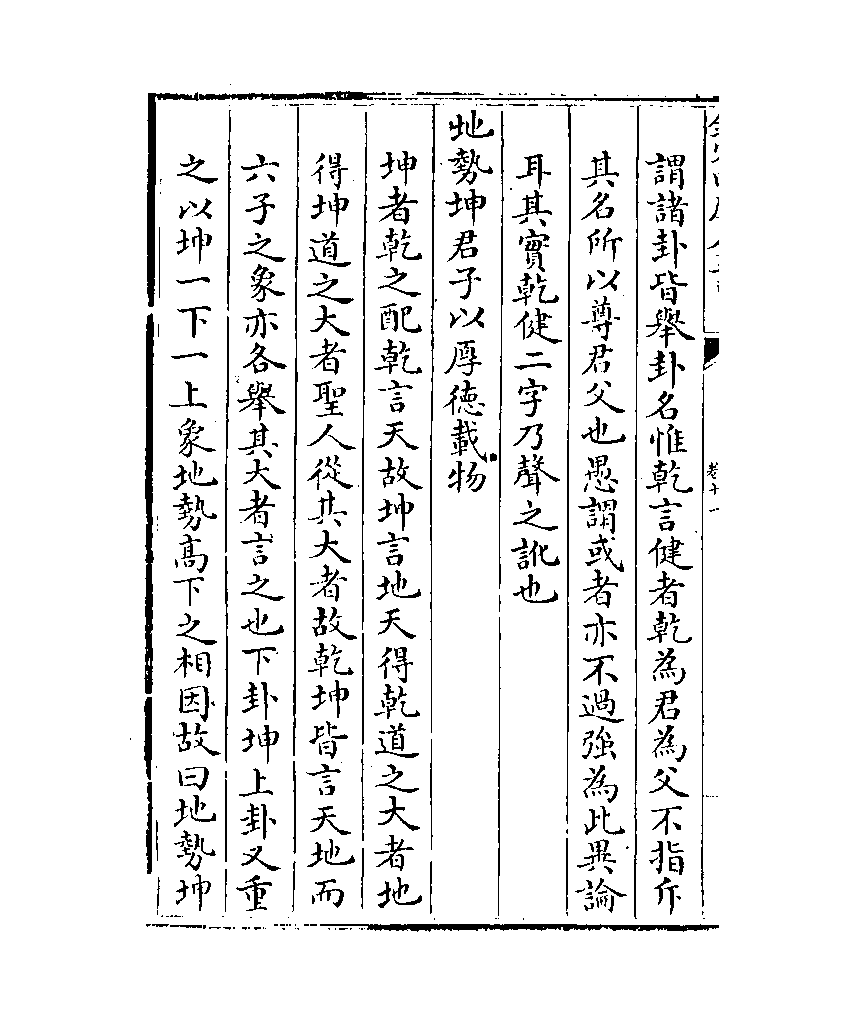 謂諸卦皆舉卦名惟乾言健者乾為君為父不指斥
其名所以尊君父也愚謂或者亦不過強為此異論
耳其實乾健二字乃聲之訛也
地勢坤君子以厚德載物
坤者乾之配乾言天故坤言地天得乾道之大者地
得坤道之大者聖人從其大者故乾坤皆言天地而
六子之象亦各舉其大者言之也下卦坤上卦又重
之以坤一下一上象地勢高下之相因故曰地勢坤
卷十一